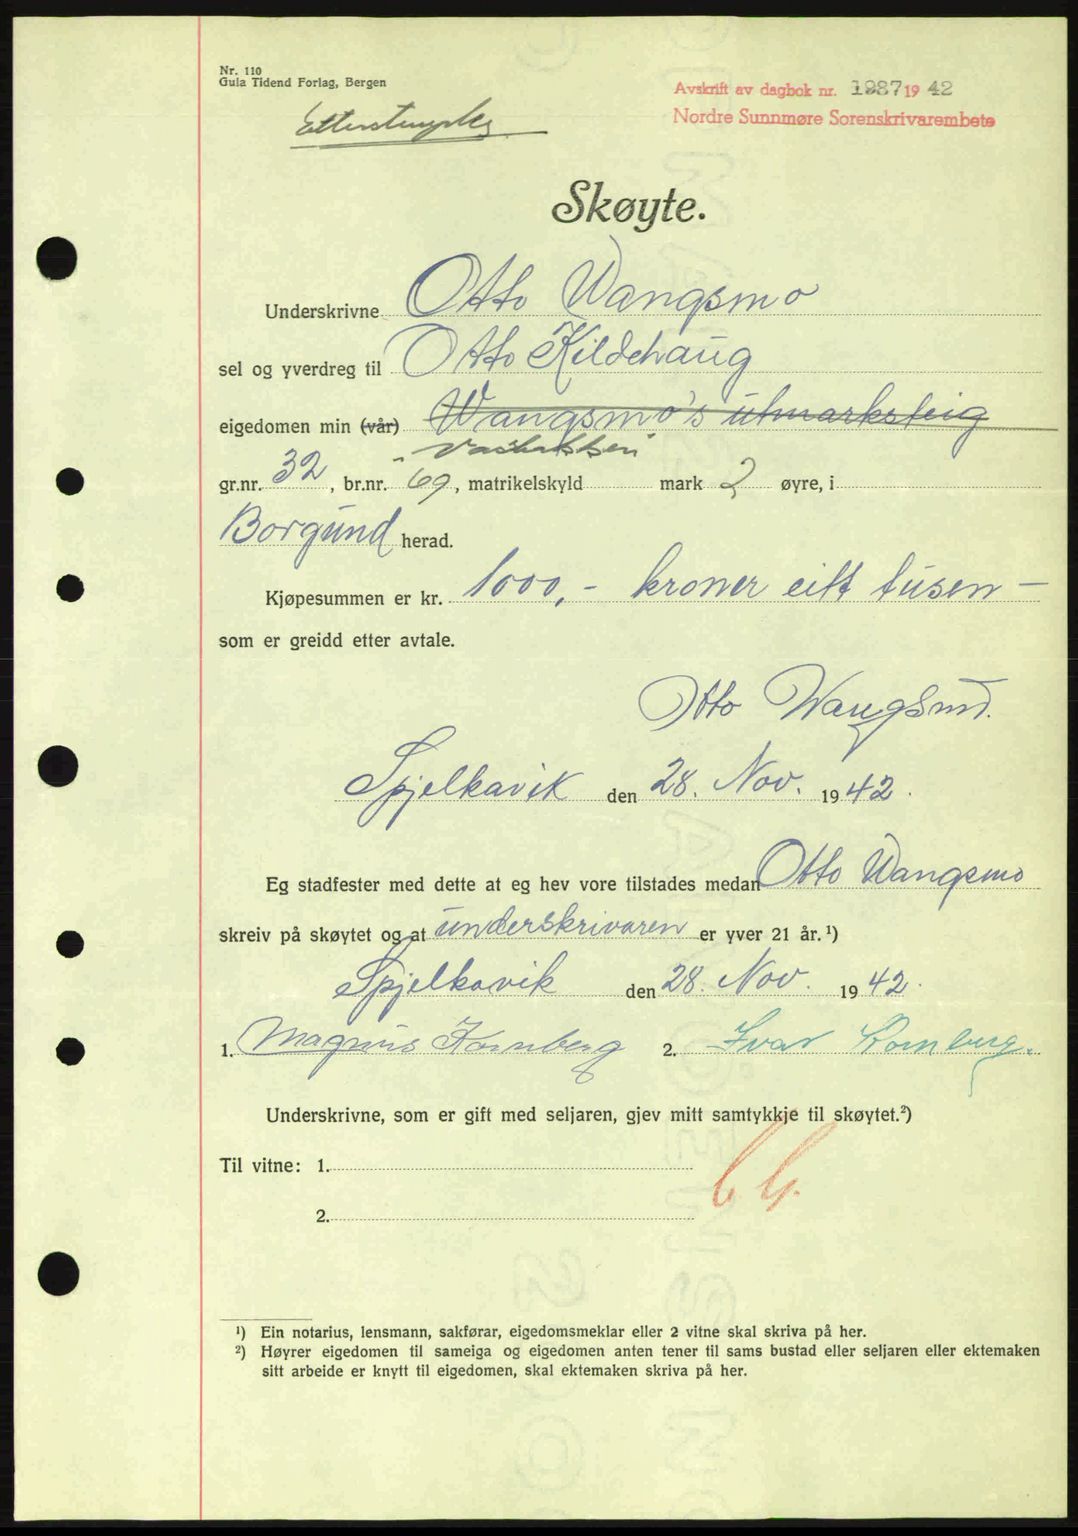 Nr. 110
Gula Tidend Forlag, Bergen
Avskrift av dagbok nr. 1987 1942
Nordre Sunnmøre Sorenskrivarembete
Skøyte.
Underskrivne Otto Wangsmo
sel og yverdreg til Otto Kildehaug
eigedomen min (vår) Wangsmo's utmarksteig
gr.nr. 32, br.nr. 69, matrikelskyld mark 2 øyre, i
Borgund herad.
Kjøpesummen er kr. 1000,- kroner eitt tusen —
som er greidd etter avtale.
Otto Wangsmo.
Spjelkavik den 28. Nov. 1942.
Eg stadfester med dette at eg hev vore tilstades medan Otto Wangsmo
skreiv på skøytet og at underskrivaren er yver 21 år.¹)
Spjelkavik den 28. Nov. 1942.
1. Magnus Kornberg 2. Ivar Kornberg.
Underskrivne, som er gift med seljaren, gjev mitt samtykkje til skøytet.²)
Til vitne: 1.
2.
¹) Ein notarius, lensmann, sakførar, eigedomsmeklar eller 2 vitne skal skriva på her.
²) Høyrer eigedomen til sameiga og eigedomen anten tener til sams bustad eller seljaren eller ektemaken
sitt arbeide er knytt til eigedomen, skal ektemaken skriva på her.